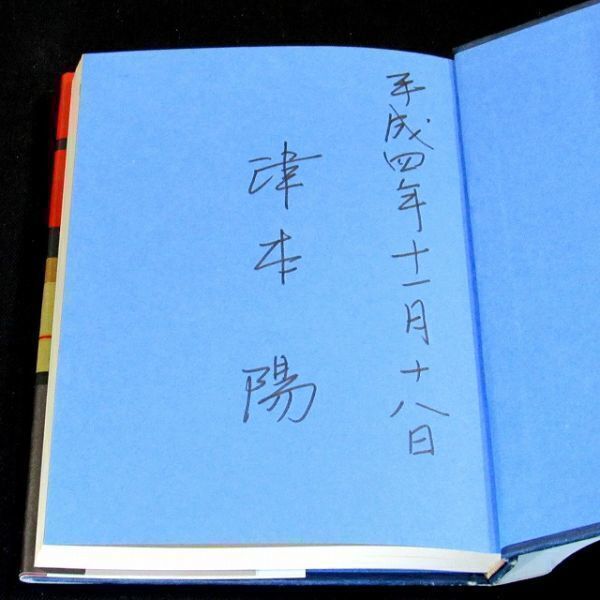 平成四年十一月十八日
津本陽